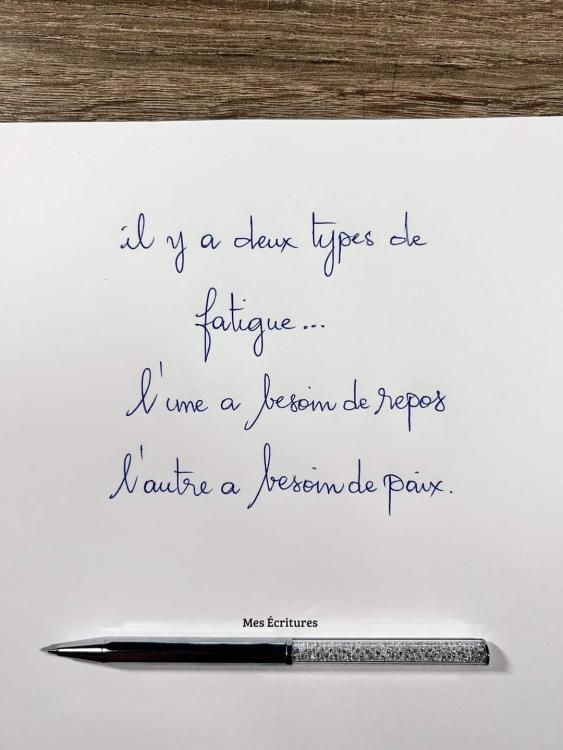 il y a deux types de
fatigue...
l'une a besoin de repos
l'autre a besoin de paix.
Mes Écritures